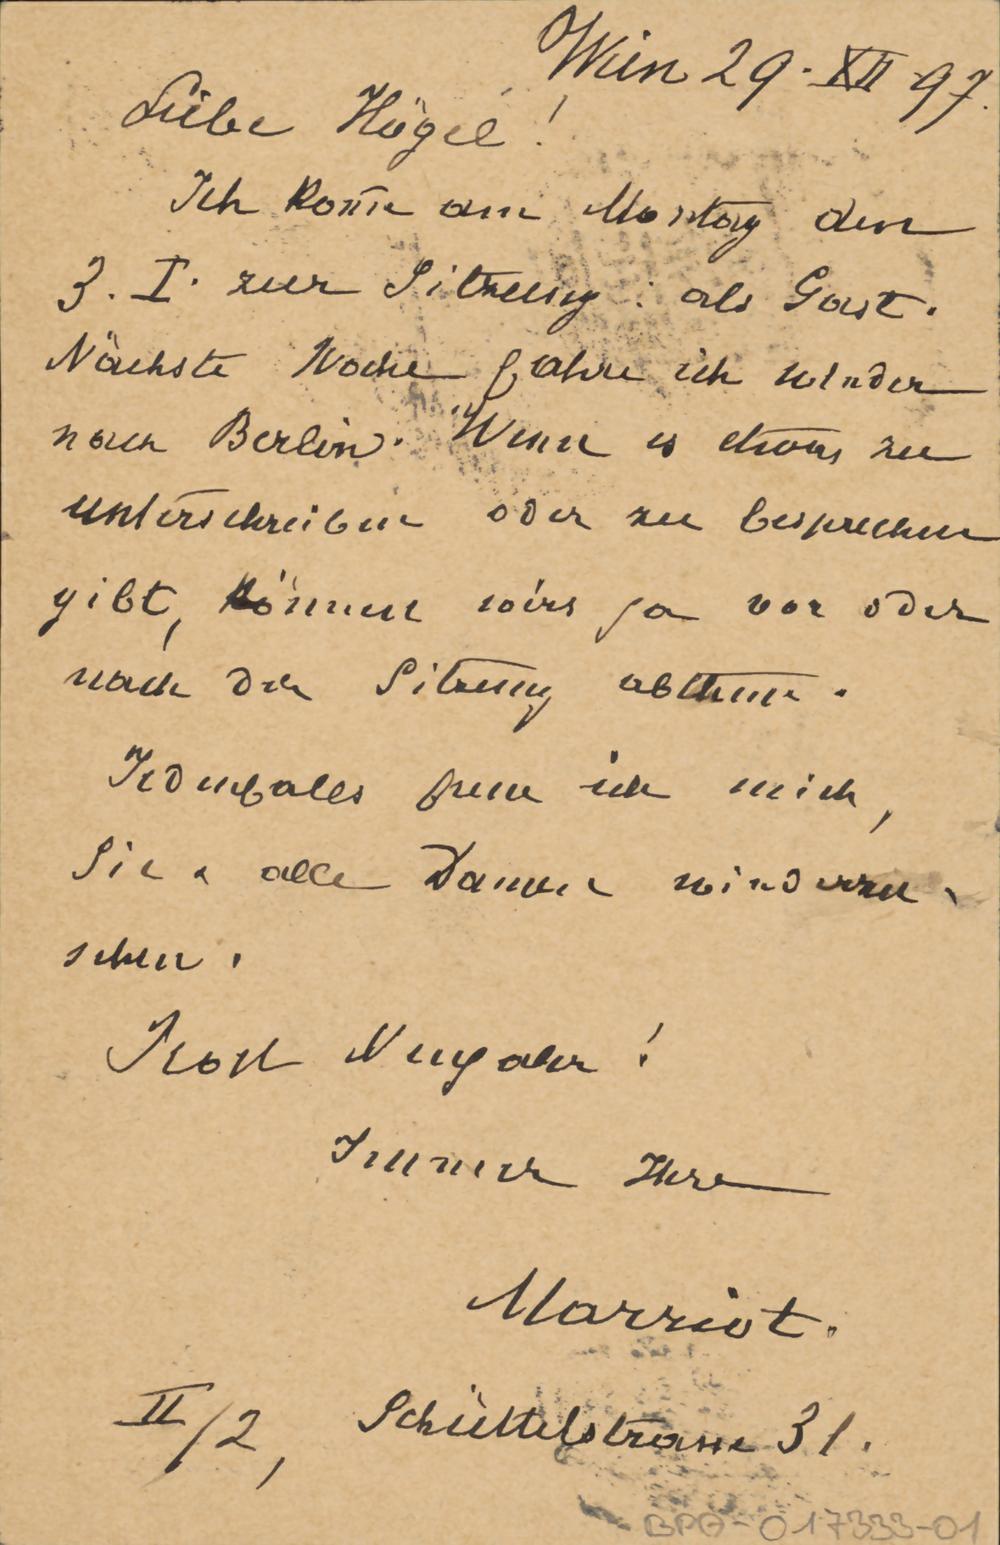 Wien 29. XII 97.
Liebe Högel!
Ich kom̅e am Montag den
3. I. zur Sitzung: als Gast.
Nächste Woche fahre ich wieder
nach Berlin. Wenn es etwas zu
unterschreiben oder zu besprechen
gibt, können wirs ja vor oder
nach der Sitzung abthun.
Jedenfalls freue ich mich,
Sie u alle Damen wiederzu-
sehen.
Prost Neujahr!
Immer Ihre
Marriot.
II/2, Schüttelstrasse 31.
BPG-017333-01